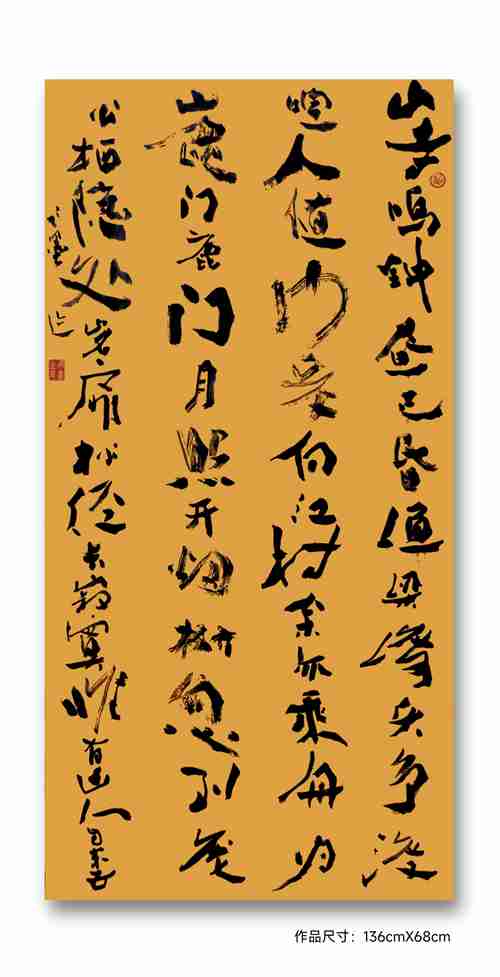 山寺鸣钟昼已昏渔梁渡头争渡
喧人随沙岸向江村余亦乘舟归
鹿门鹿门月照开烟树忽到庞
公栖隐处岩扉松径长寂寞惟有幽人自来去
作品尺寸：136cmX68cm